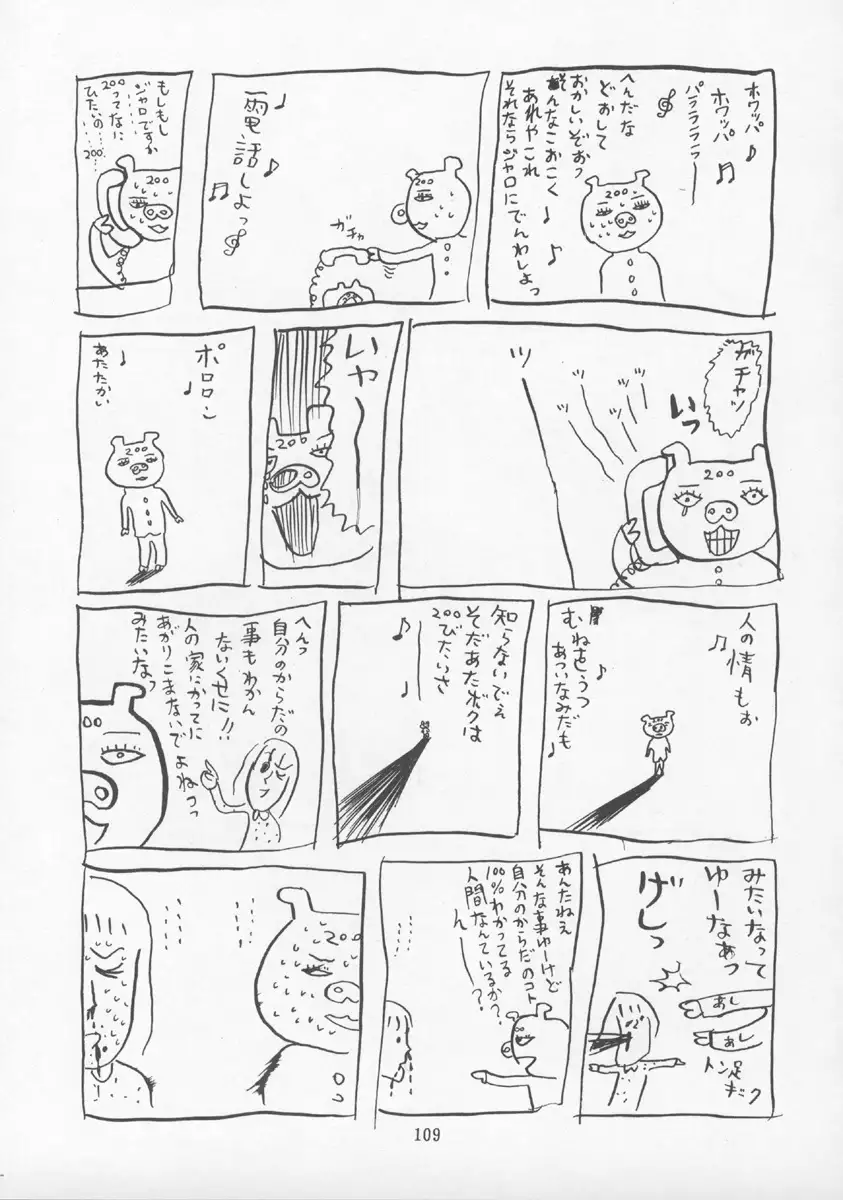 ホワッパ♪
ホワッパ♬
パララランラー
へんだな
どおして
おかしいぞおっ
そんなこおこく
あれやこれ
それならジャロにでんわしよっ
200
電話しよっ
ガチャ
200
もしもし
ジャロですか
200ってなに
ひたいの……200…
200
ガチャッ
いっ
ツ
ツ
ツ
ツ
ツ
200
いやーー
200
ポロロン
あたたかい
200
人の情もぉ
むねをうつ
あついなみだも
知らないでぇ
そだあたボクは
200びたいさ
へんっ
自分のからだの
事もわかん
ないくせに!!
人の家にかってに
あがりこまないでよねっっ
みたいなっ
みたいなって
ゆーなぁっ
げしっ
あし
あし
トン足キック
あんたねえ
そんな事ゆーけど
自分のからだのコト
100%わかってる
人間なんているか?
んーー?
200
109